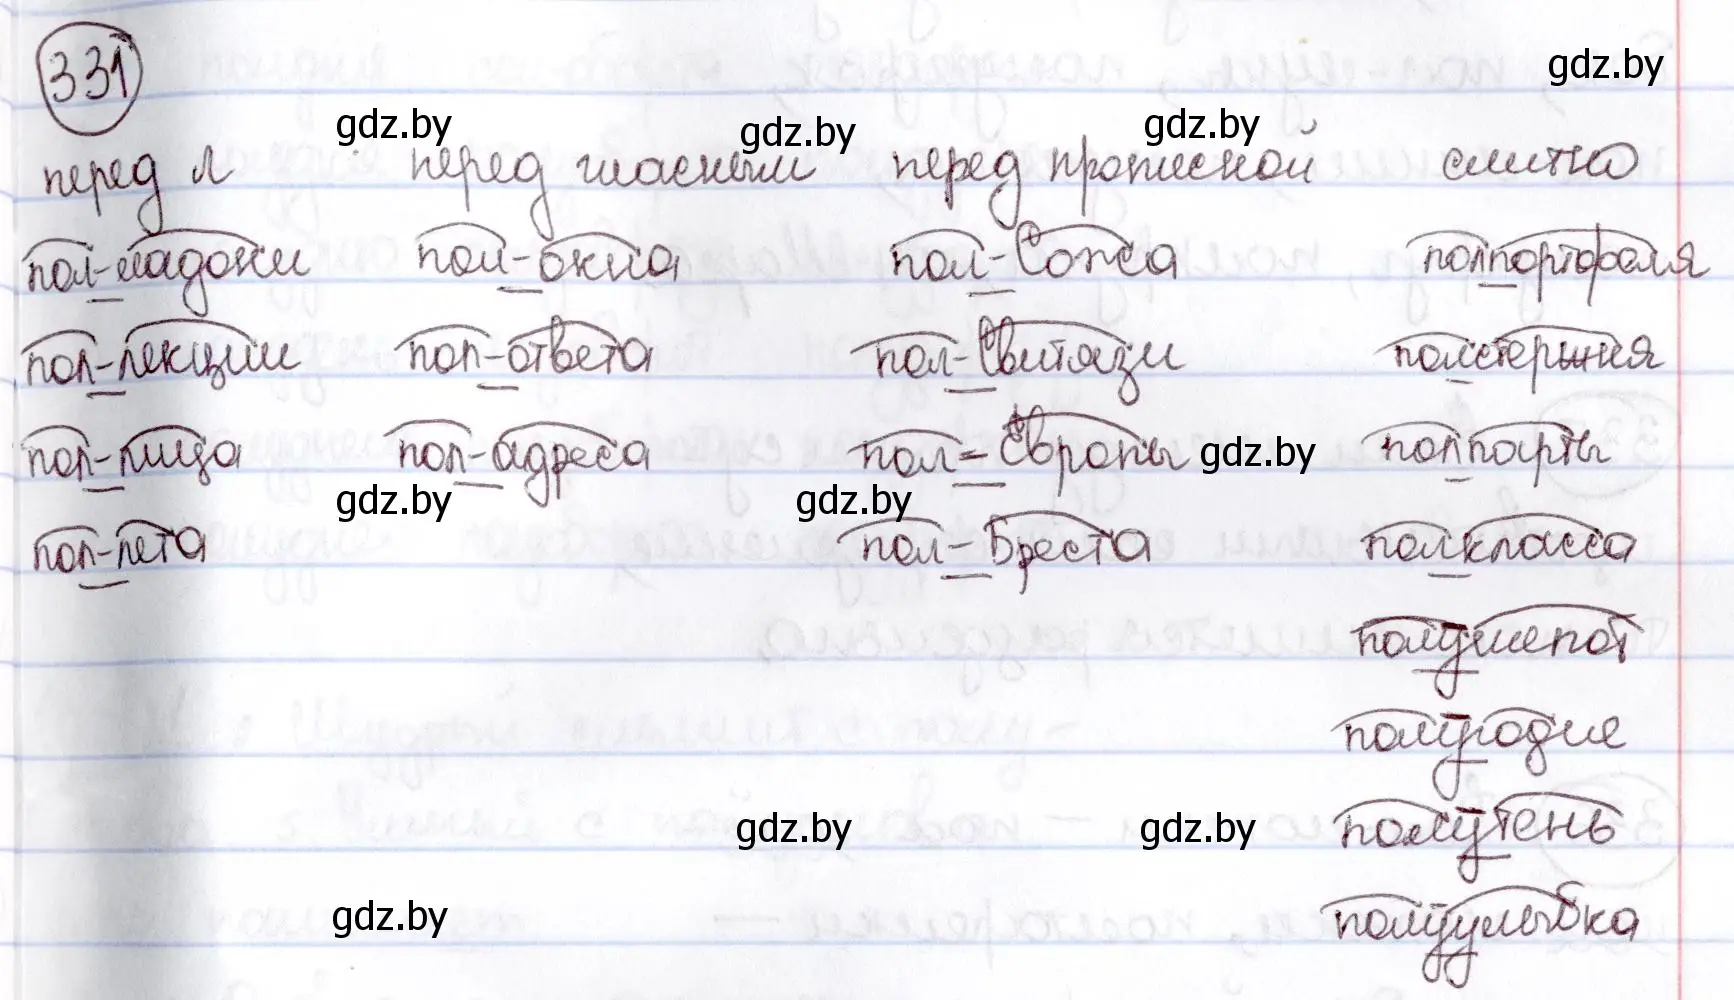 331
gdz.by
gdz.by gdz.by gdz.by
перед л перед гласными перед прописной слитно
пол-ладони пол-окна пол-Сожа полпортфеля
пол-лекции пол-ответа пол-Свитязи полстержня
пол-лица пол-адреса пол-Европы gdz.by полпарты
gdz.by gdz.by
пол-лета пол-Бреста полкласса
полушепот
полугодие
gdz.by gdz.by полутень
gdz.by полуулыбка